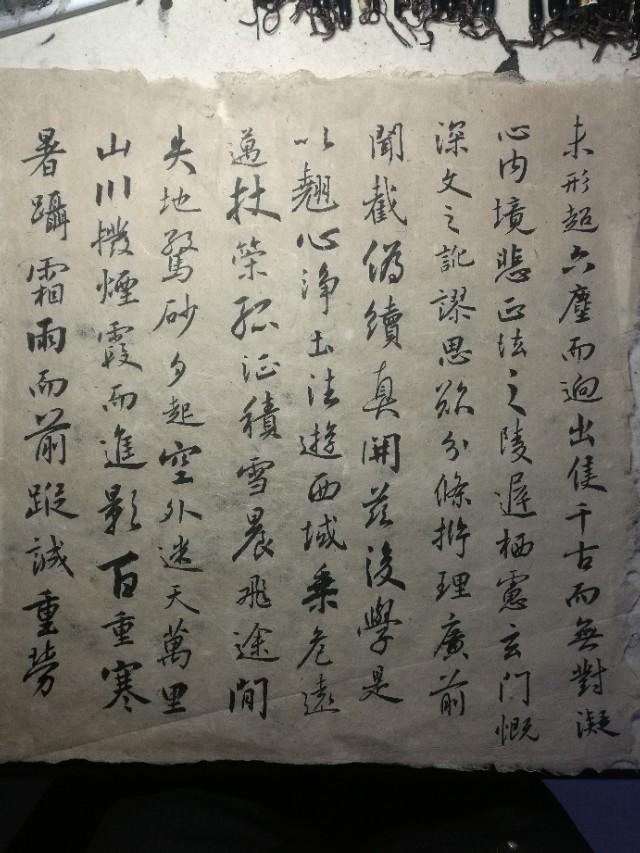 未形超六塵而迥出隻千古而無對凝
心内境悲正法之陵遲栖慮玄門慨
深文之訛謬思欲分條捬理廣前
聞截偽續真開茲後學是
以翹心淨土法遊西域乗危遠
邁杖策孤征積雪晨飛途間
失地驚砂夕起空外迷天萬里
山川撥煙霞而進影百重寒
暑躡霜雨而前蹤誠重勞